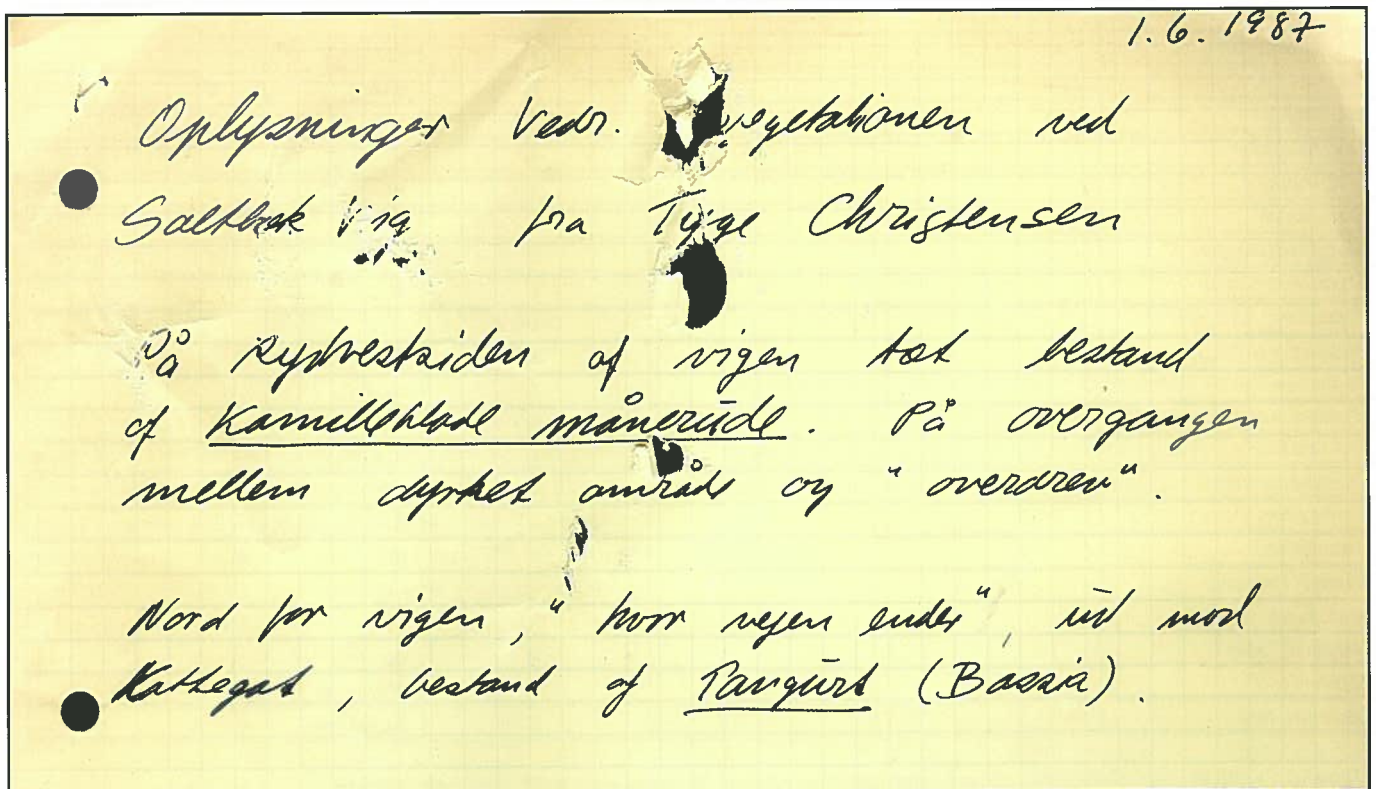 1.6.1987
Oplysninger Vedr. vegetationen ved
Saltbæk Vig fra Tyge Christensen
På sydvestsiden af vigen tæt bestand
af Kamilleblade månerude. På overgangen
mellem dyrket område og "overdrev".
Nord for vigen, "hvor vejen ender", ud mod
Kattegat, bestand af Tangurt (Bassia).